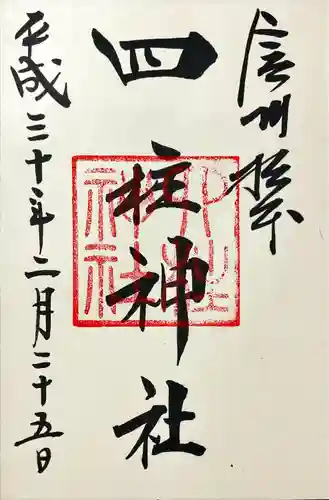 信州松本
四柱神社
四柱神社
平成三十年二月二十五日